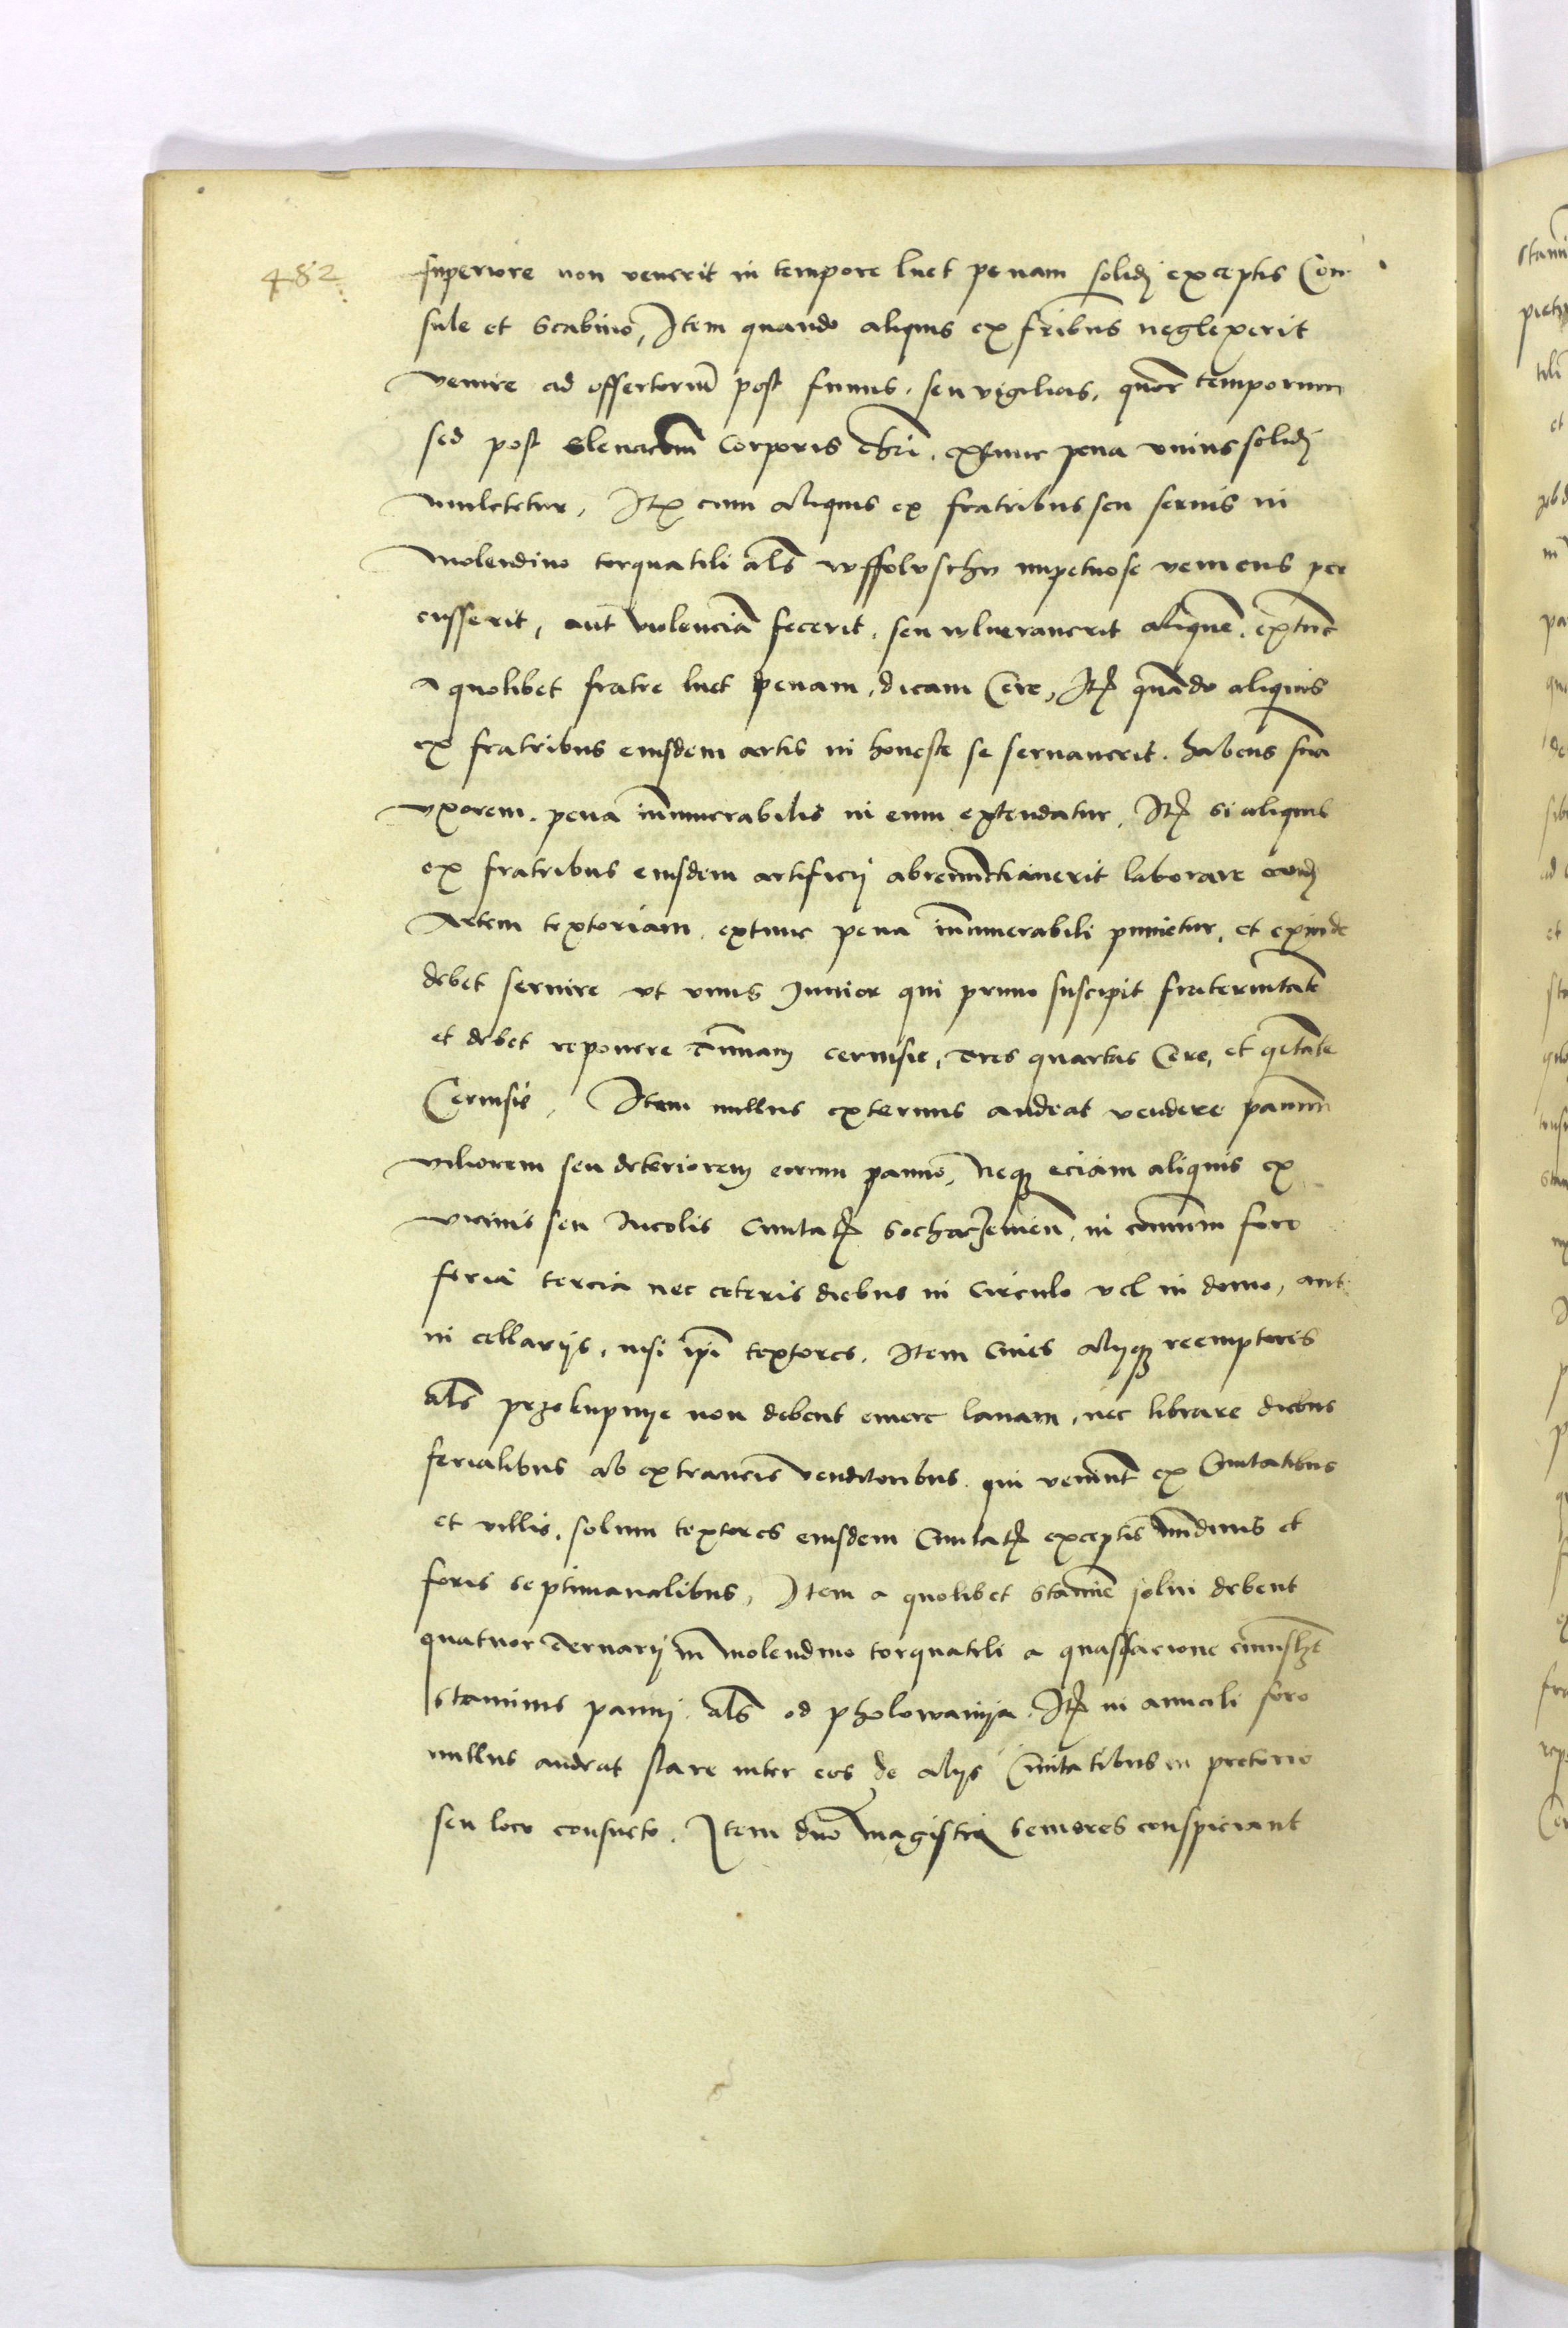 482
superiore non venerit in tempore luet penam solidj exceptis Con
sule et Scabino, Item quando aliquis ex fribus neglexerit
venire ad offertorium post funus, seu vigilias, quor temporum
sed post eleuacom Corporis chri, extunc pena vnius solidj
mulctetur, Itp cum aliquis ex fratribus seu seruis in
molendino torquatili als wffolvschv impetuose veniens per
cusserit, aut violenciā fecerit, seu wlnerauerit aliquē, extūc
a quolibet fratre luet penam, dicam Cere, Itp quādo aliquis
ex fratribus eiusdem artis in honeste se seruauerit, habens suā
vxorem, pena innumerabilis in eum extendatur, Itp si aliquis
ex fratribus eiusdem artificij abrenunctiauerit laborare
Artem textoriam, extunc pena innumerabili punietur, et exinde
debet seruire vt vnus Junior qui primo suscipit fraternitatē
et debet reponere tunnam ceruisie, tres quartas Cere, et
Ceruisie, Item nullus externus audeat vendere pannum
viliorem seu deteriorem eorum panno, neque eciam aliquis ex
vicinis seu Incolis Ciuitatis Socharzeuien, in comuni foro
feria tercia nec ceteris diebus in Circulo vel in domo, aut
in cellarijs, nisi ipi textores, Item Ciues alijque reemptores
als przekupnije non debent emere lanam, nec librare diebus
ferialibus ab extraneis venditoribus qui veniunt ex Ciuitatibus
et villis, solum textores eiusdem Ciuitatis exceptis nundinis et
foris septimanalibus, Item a quolibet stamine solui debent
quatuor denarij in molendino torquatili a quassacione
staminis pannj als od pholowanija, Itp in annuali foro
nullus audeat stare inter eos de alijs Ciuitatibus in pretorio
seu loco consueto, Item duo magistri seniores conspiciant